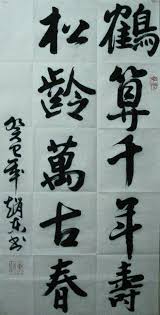 鶴算千年壽
松齡萬古春
癸巳年趙友書